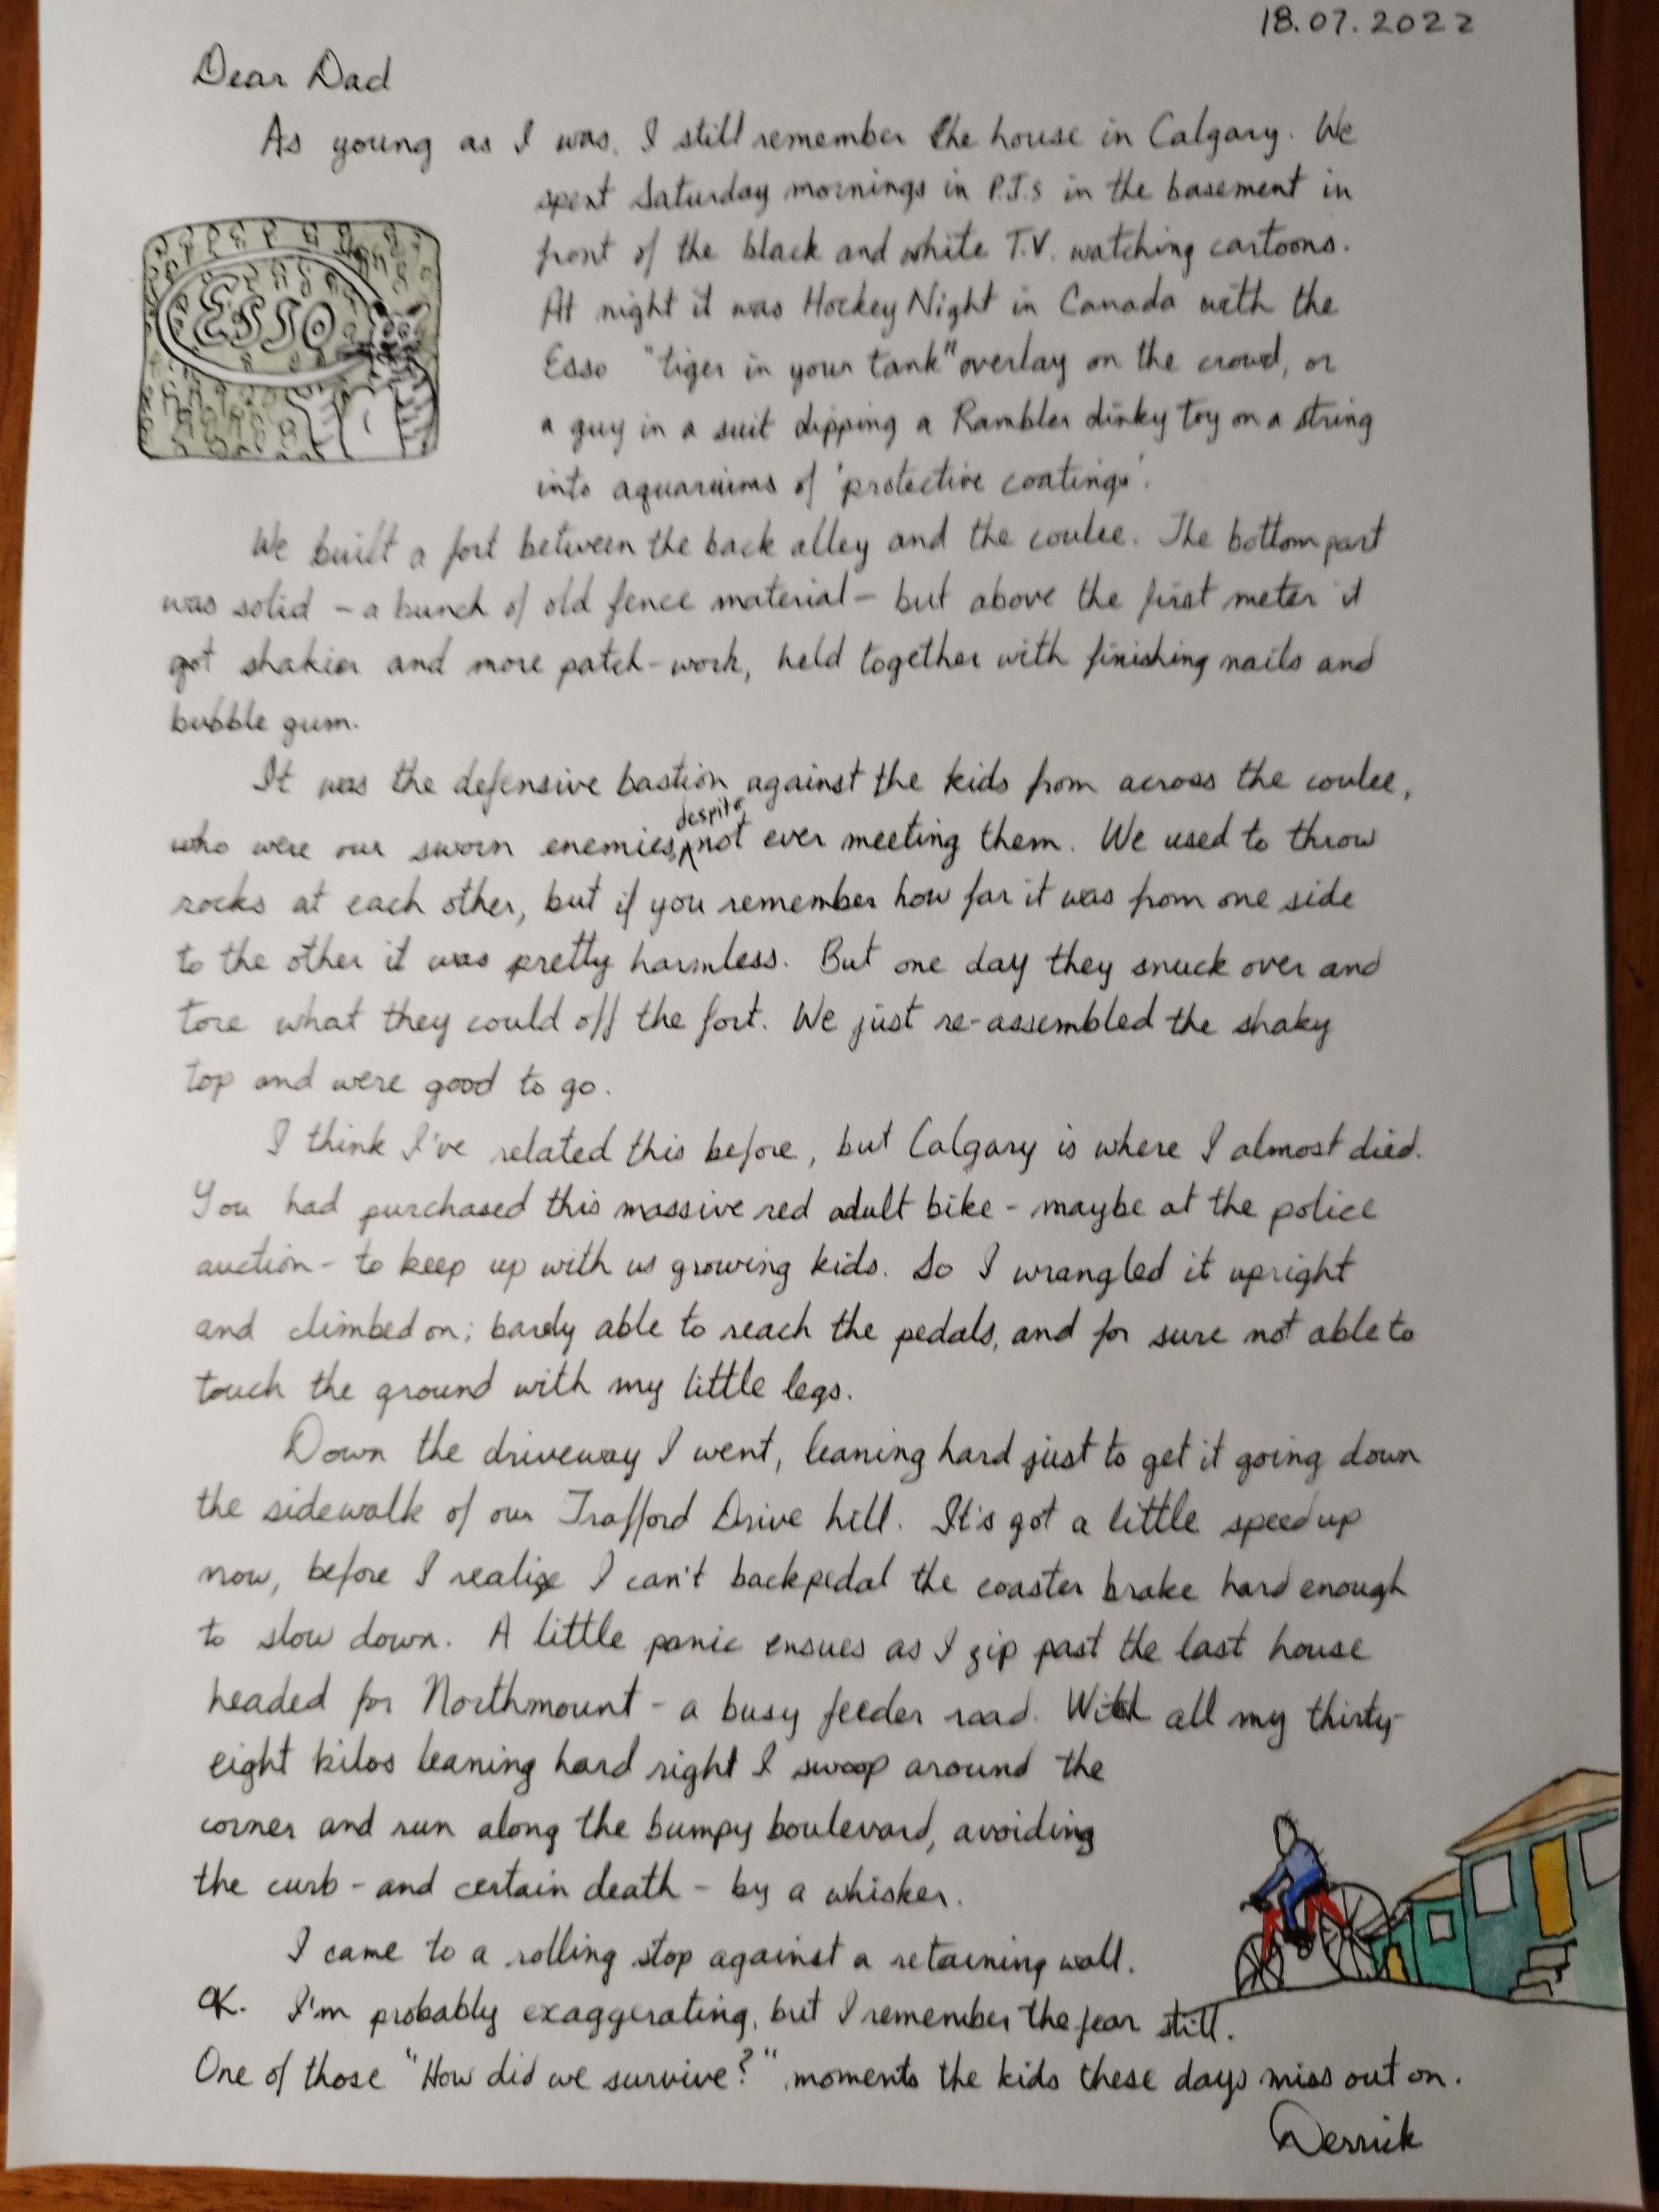 18.07.2022
Dear Dad
As young as I was, I still remember the house in Calgary. We
spent Saturday mornings in P.J.s in the basement in
front of the black and white T.V. watching cartoons.
At night it was Hockey Night in Canada with the
Esso "tiger in your tank" overlay on the crowd, or
a guy in a suit dipping a Rambler dinky toy on a string
into aquariums of 'protective coatings'.
ESSO
We built a fort between the back alley and the coulee. The bottom part
was solid - a bunch of old fence material - but above the first meter it
got shakier and more patch-work, held together with finishing nails and
bubble gum.
It was the defensive bastion against the kids from across the coulee,
who were our sworn enemies, despite not ever meeting them. We used to throw
rocks at each other, but if you remember how far it was from one side
to the other it was pretty harmless. But one day they snuck over and
tore what they could off the fort. We just re-assembled the shaky
top and were good to go.
I think I've related this before, but Calgary is where I almost died.
You had purchased this massive red adult bike - maybe at the police
auction - to keep up with us growing kids. So I wrangled it upright
and climbed on; barely able to reach the pedals, and for sure not able to
touch the ground with my little legs.
Down the driveway I went, leaning hard just to get it going down
the sidewalk of our Trafford Drive hill. It's got a little speed up
now, before I realize I can't backpedal the coaster brake hard enough
to slow down. A little panic ensues as I zip past the last house
headed for Northmount - a busy feeder road. With all my thirty-
eight kilos leaning hard right I swoop around the
corner and run along the bumpy boulevard, avoiding
the curb - and certain death - by a whisker.
I came to a rolling stop against a retaining wall.
OK. I'm probably exaggerating, but I remember the fear still.
One of those "How did we survive?" moments the kids these days miss out on.
Derrick